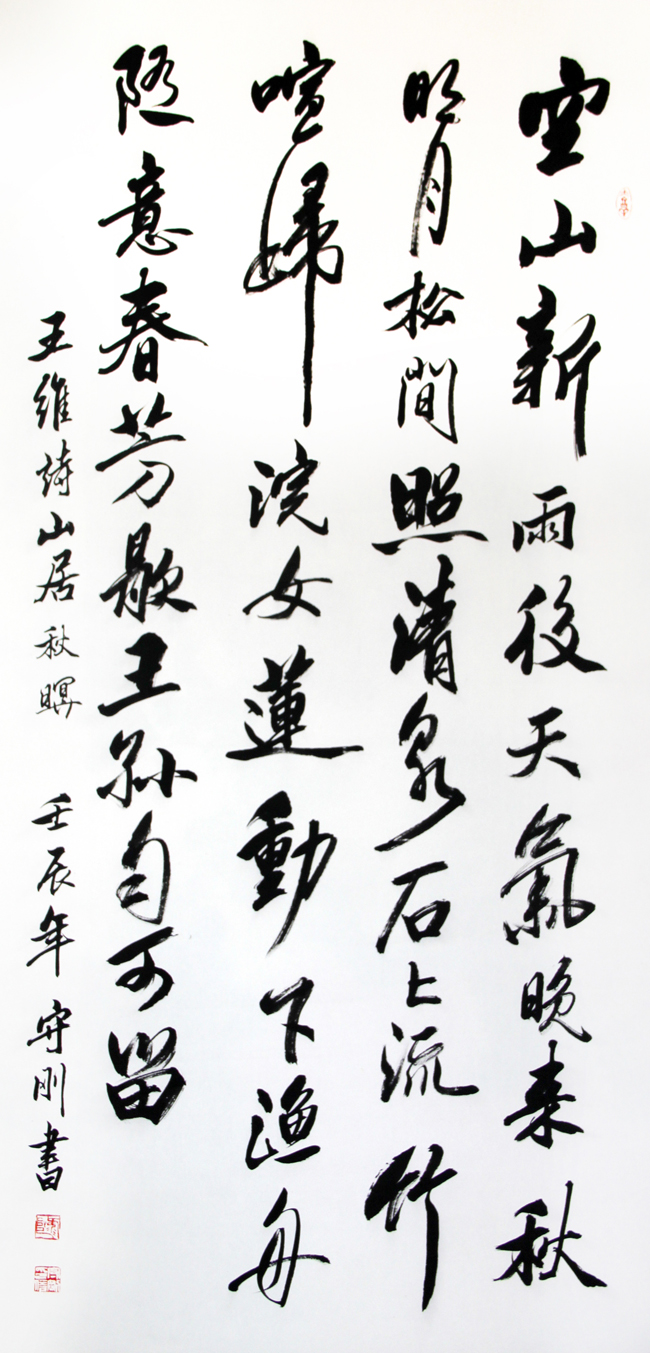 空山新雨後天氣晚來秋
明月松間照清泉石上流竹
喧歸浣女蓮動下漁舟
隨意春芳歇王孫自可留
王維詩山居秋暝 壬辰年 守剛書